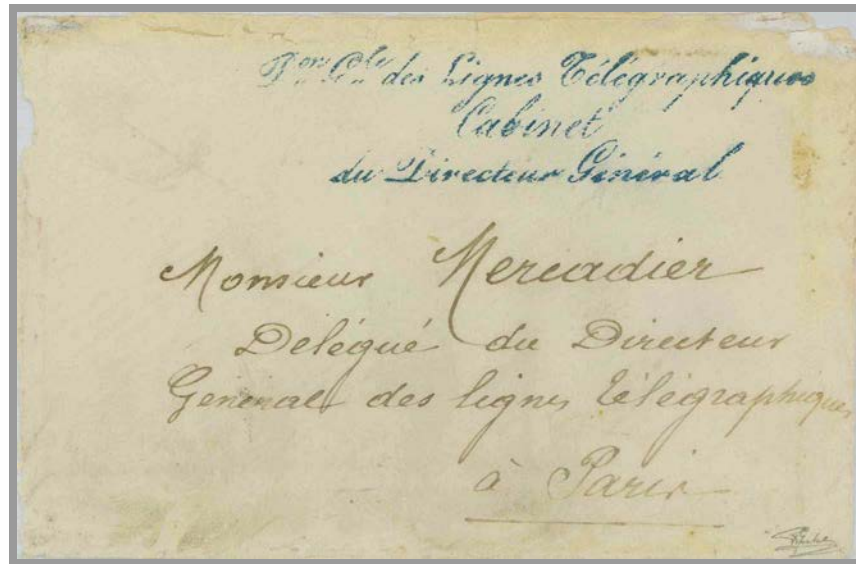 Don Gle des Lignes Télégraphiques
Cabinet
du Directeur Général
Monsieur Mercadier
Délégué du Directeur
Général des lignes télégraphiques
à Paris